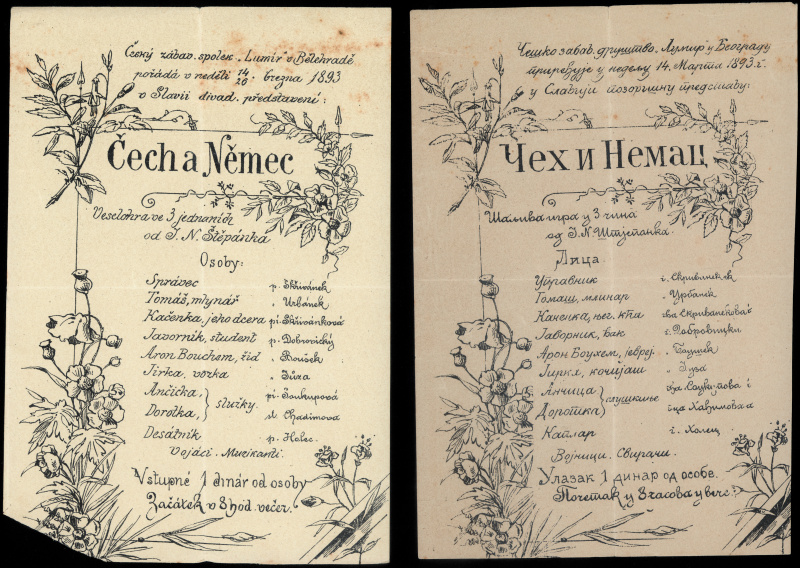 Český zábav. spolek „Lumír" v Bělehradě
pořádá v neděli 14/26. března 1893
v Slavii divad. představení:
Čech a Němec
Veselohra ve 3 jednáních
od J. N. Štěpánka
Osoby:
Správec p. Skřivánek
Tomáš, mlynář " Urbánek
Kačenka, jeho dcera pí Skřivánková
Javorník, student p. Dobrovický
Aron Bouchem, žid " Boušek
Jirka, vozka " Jůza
Ančička, pí Soukupová
služky.
Dorotka, sl. Chadimova
Desátník p. Holec
Vojáci. Muzikanti.
Vstupné 1 dinár od osoby
Začátek v 8 hod. večer.
Чешко забав. друштво „Лумир" у Београду
приређује у недељу 14. Марта 1893. г.
у Славији позоришну представу:
Чех и Немац
Шаљива игра у 3 чина
од Ј. Н. Штјепанка.
Лица
Управник г. Скриванек
Томаш, млинар " Урбанек
Каченка, њег. кћи гђа Скриванкова
Јаворник, ђак г. Добровицки
Арон Боухем, јевреј. " Боушек
Јирка, кочијаш " Јуза
Анчица гђа Соукупова
слушкиње
Доротка гца Хадимова
Каплар г. Холец
Војници. Свирачи.
Улазак 1 динар од особе.
Почетак у 8 часова у веч.